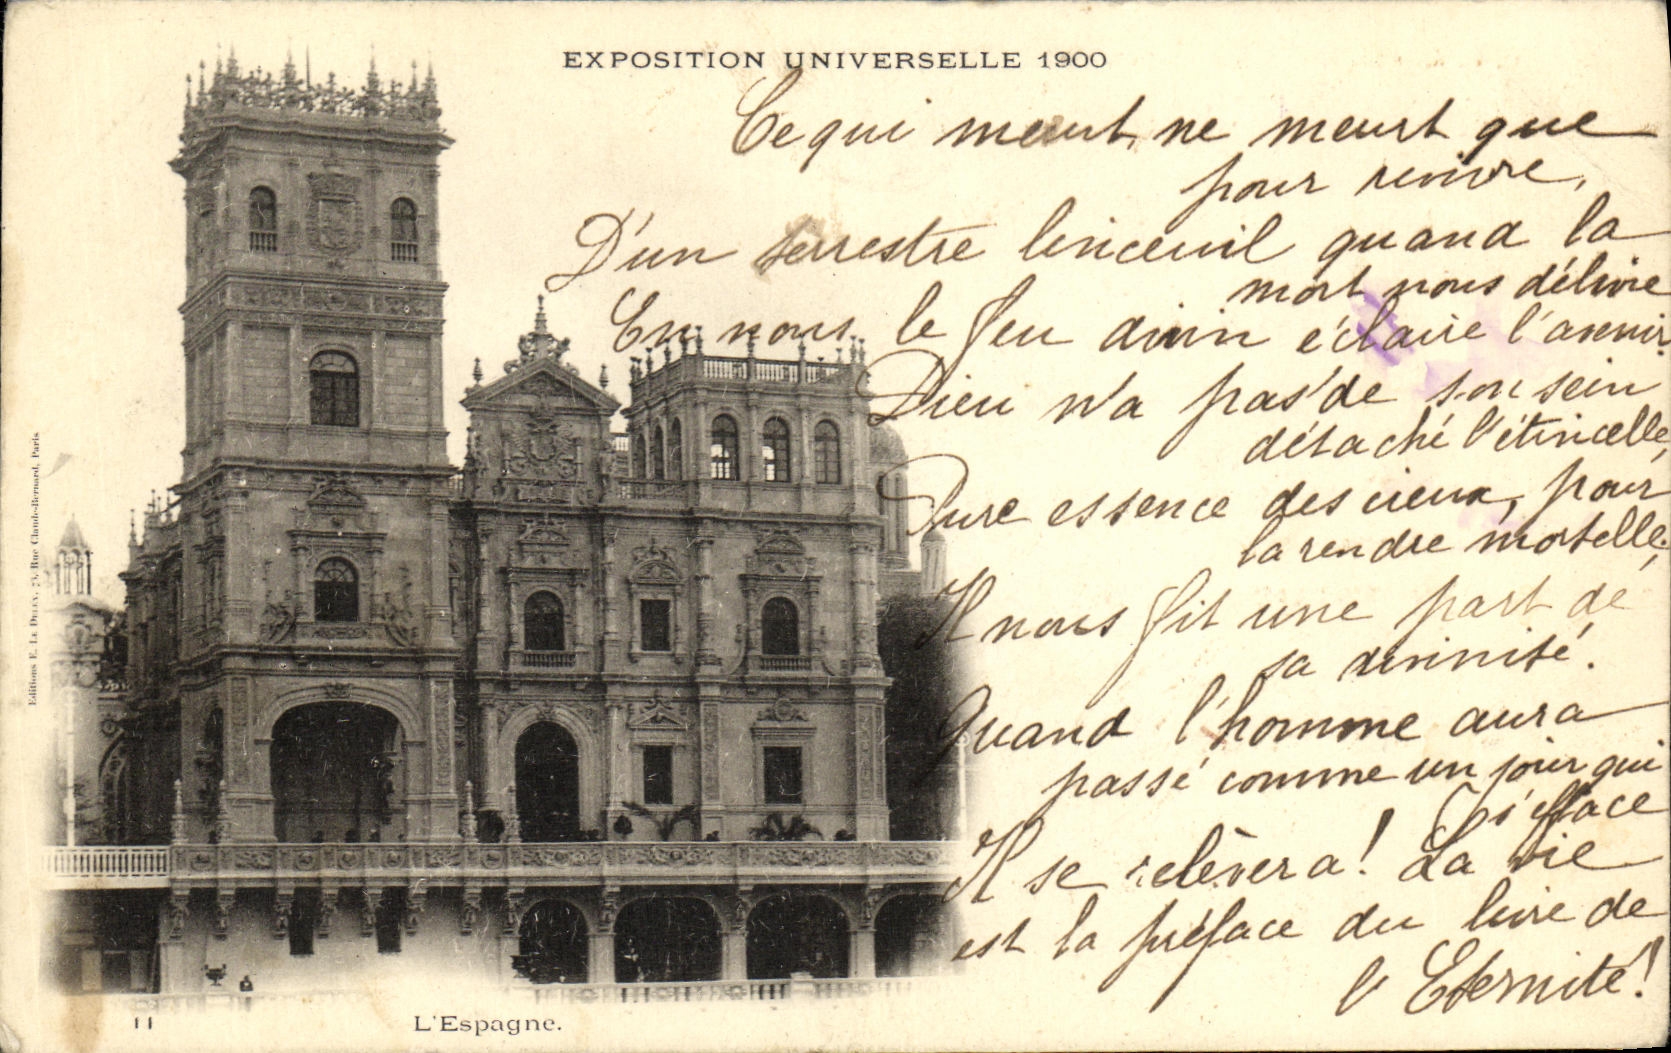 EXPOSITION UNIVERSELLE 1900
Ce qui meurt, ne meurt que
pour revivre,
D'un terrestre linceuil quand la
mort nous délivre
En nous le feu divin éclaire l'avenir
Dieu n'a pas de son sein
détaché l'étincelle,
Pure essence des cieux, pour
la rendre mortelle;
Il nous fit une part de
sa divinité.
Quand l'homme aura
passé comme un jour qui
s'efface
Il se relèvera! La vie
est la préface du livre de
l'Eternité!
Editions E. Le Deley, 73, Rue Claude-Bernard, Paris
11
L'Espagne.